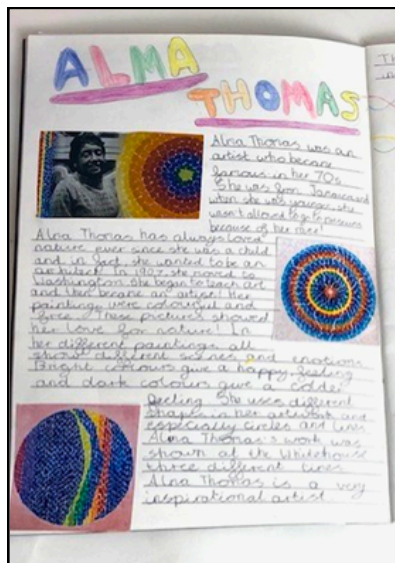 ALMA
THOMAS
Alna Thomas was an
artist who became
famous in her 70s
She was from Jamaica and
when she was younger, she
wasn't allowed to go to museums
because of her race!
Alna Thomas has always loved
nature ever since she was a child
and in fact, she wanted to be an
architect! In 1907 she moved to
Washington. She began to teach art
and then became an artist! Her
paintings were colourful and
free. These pictures showed
her love for nature! In
her different paintings all
show different scenes and emotion
Bright colours give a happy feeling
and dark colours give a colder
feeling. She uses different
shapes in her artwork and
especially circles and lines
Alma Thomas's work was
shown at the Whitehouse
three different times
Alna Thomas is a very
inspirational artist